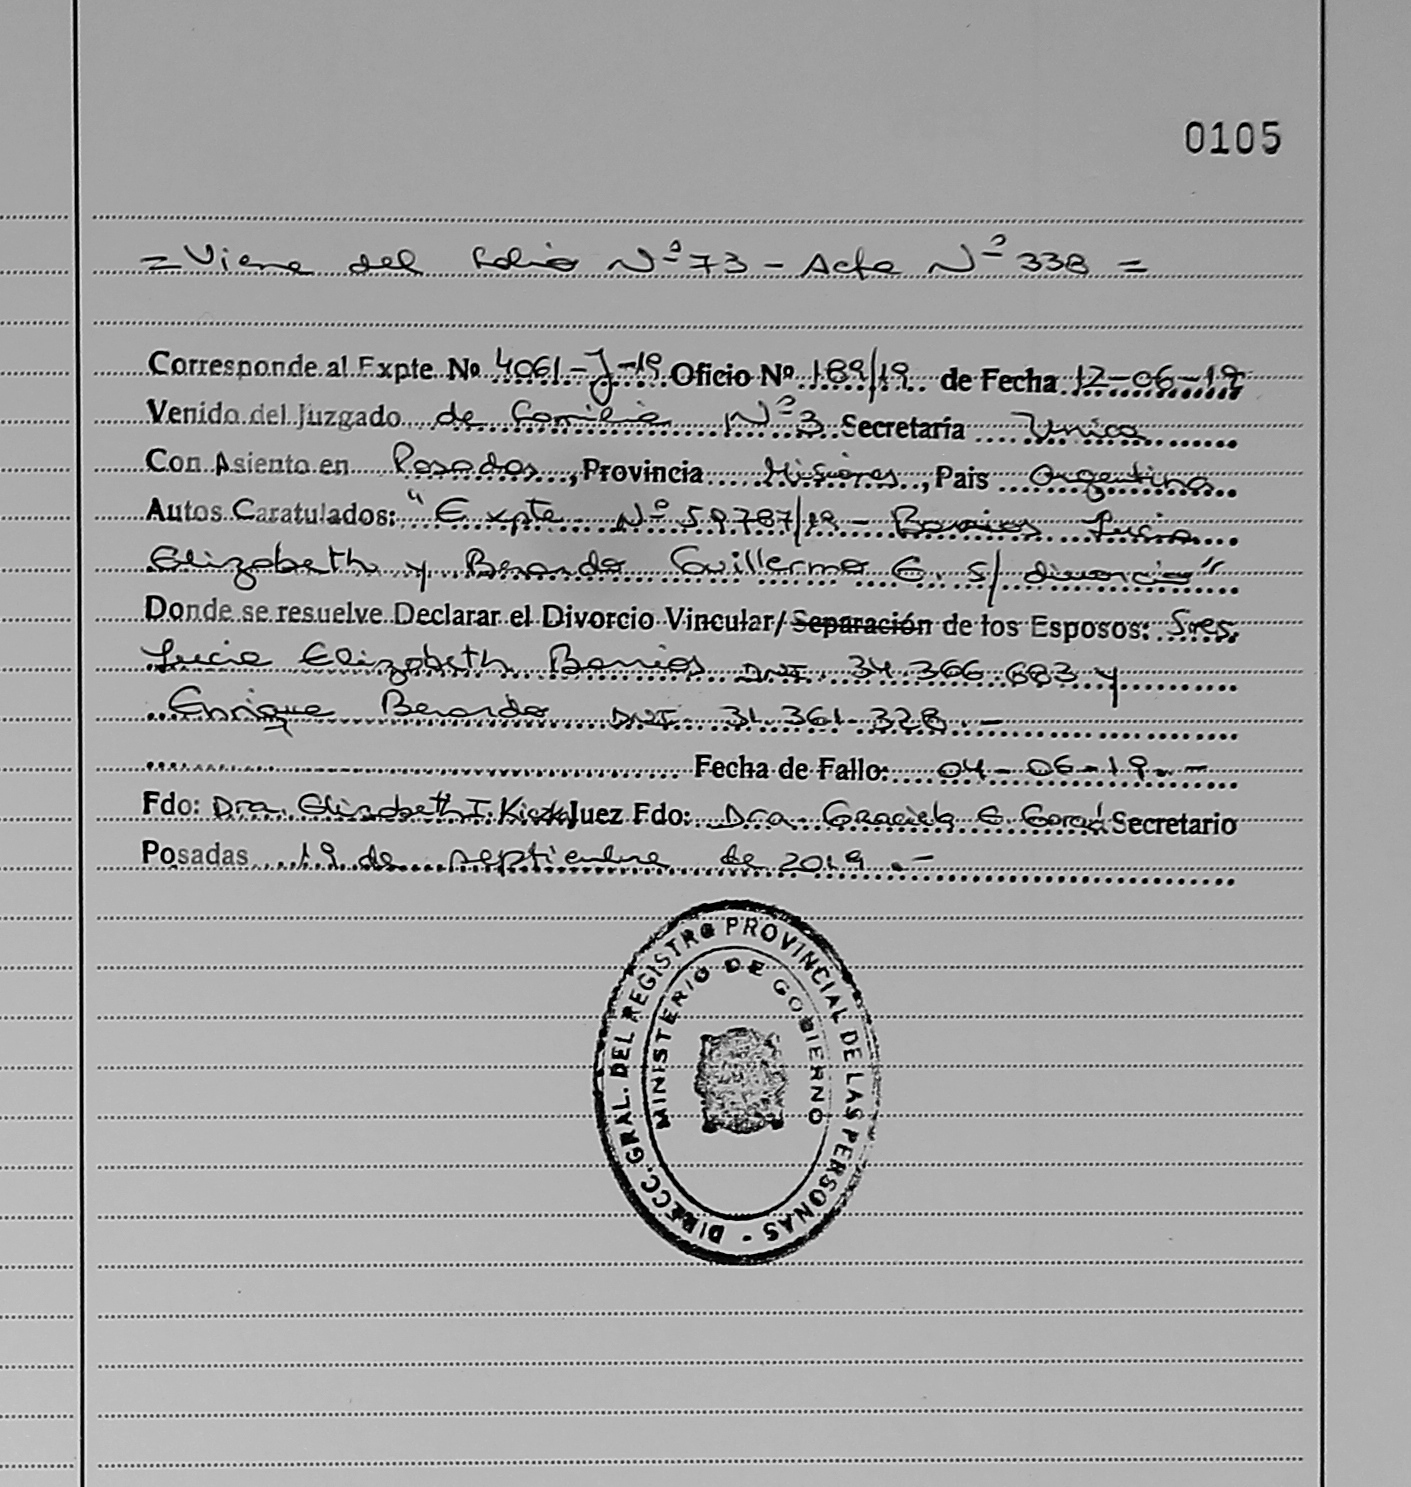 0105
= Viene del Folio Nº 73 - Acta Nº 338 =
Corresponde al Expte. Nº 4061-J-19 Oficio Nº 189/19 de Fecha 12-06-19
Venido del Juzgado de Familia Nº 3 Secretaría Unica
Con Asiento en Posadas, Provincia Misiones, Pais Argentina
Autos Caratulados: "Expte Nº 59787/19 - Barrios Lucia
Elizabeth y Berardo Guillermo E. s/ divorcio"
Donde se resuelve Declarar el Divorcio Vincular/Separación de los Esposos: Sres.
Lucia Elizabeth Barrios DNI 34.366.683 y
Enrique Berardo DNI 31.361.328.-
Fecha de Fallo: 04-06-19.-
Fdo: Dra. Elizabeth I. Juez Fdo: Dra. Graciela E. Secretario
Posadas 19 de septiembre de 2019.-
DIRECC. GRAL. DEL REGISTRO PROVINCIAL DE LAS PERSONAS -
MINISTERIO DE GOBIERNO